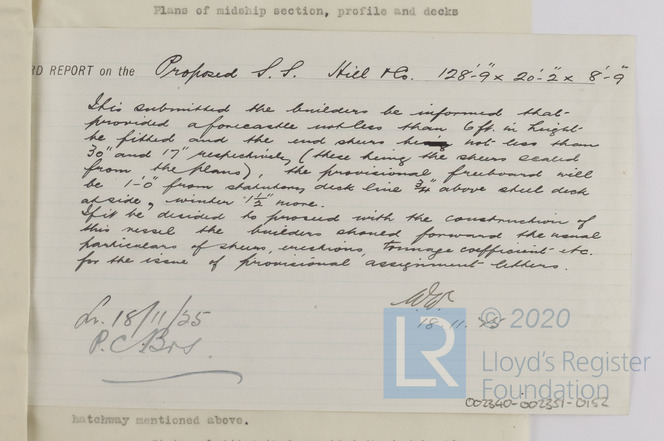 Plans of midship section, profile and decks
RD REPORT on the Proposed S.S. Hill & Co. 128'-9" x 20'-2" x 8'-9"
It is submitted the builders be informed that
provided a forecastle not less than 6 ft. in height
be fitted and the end sheers not less than
30" and 17" respectively (these being the sheers scaled
from the plans), the provisional freeboard will
be 1'-0" from statutory deck line 3/4" above steel deck
at side, winter 1 1/2" more.
If it be decided to proceed with the construction of
this vessel the builders should forward the usual
particulars of sheers, erections, tonnage coefficient etc.
for the issue of provisional assignment letters.
Lr. 18/11/25
18.11.25
P.C. Bros.
© 2020
LR
Lloyd's Register
Foundation
002340-002351-0152
hatchway mentioned above.